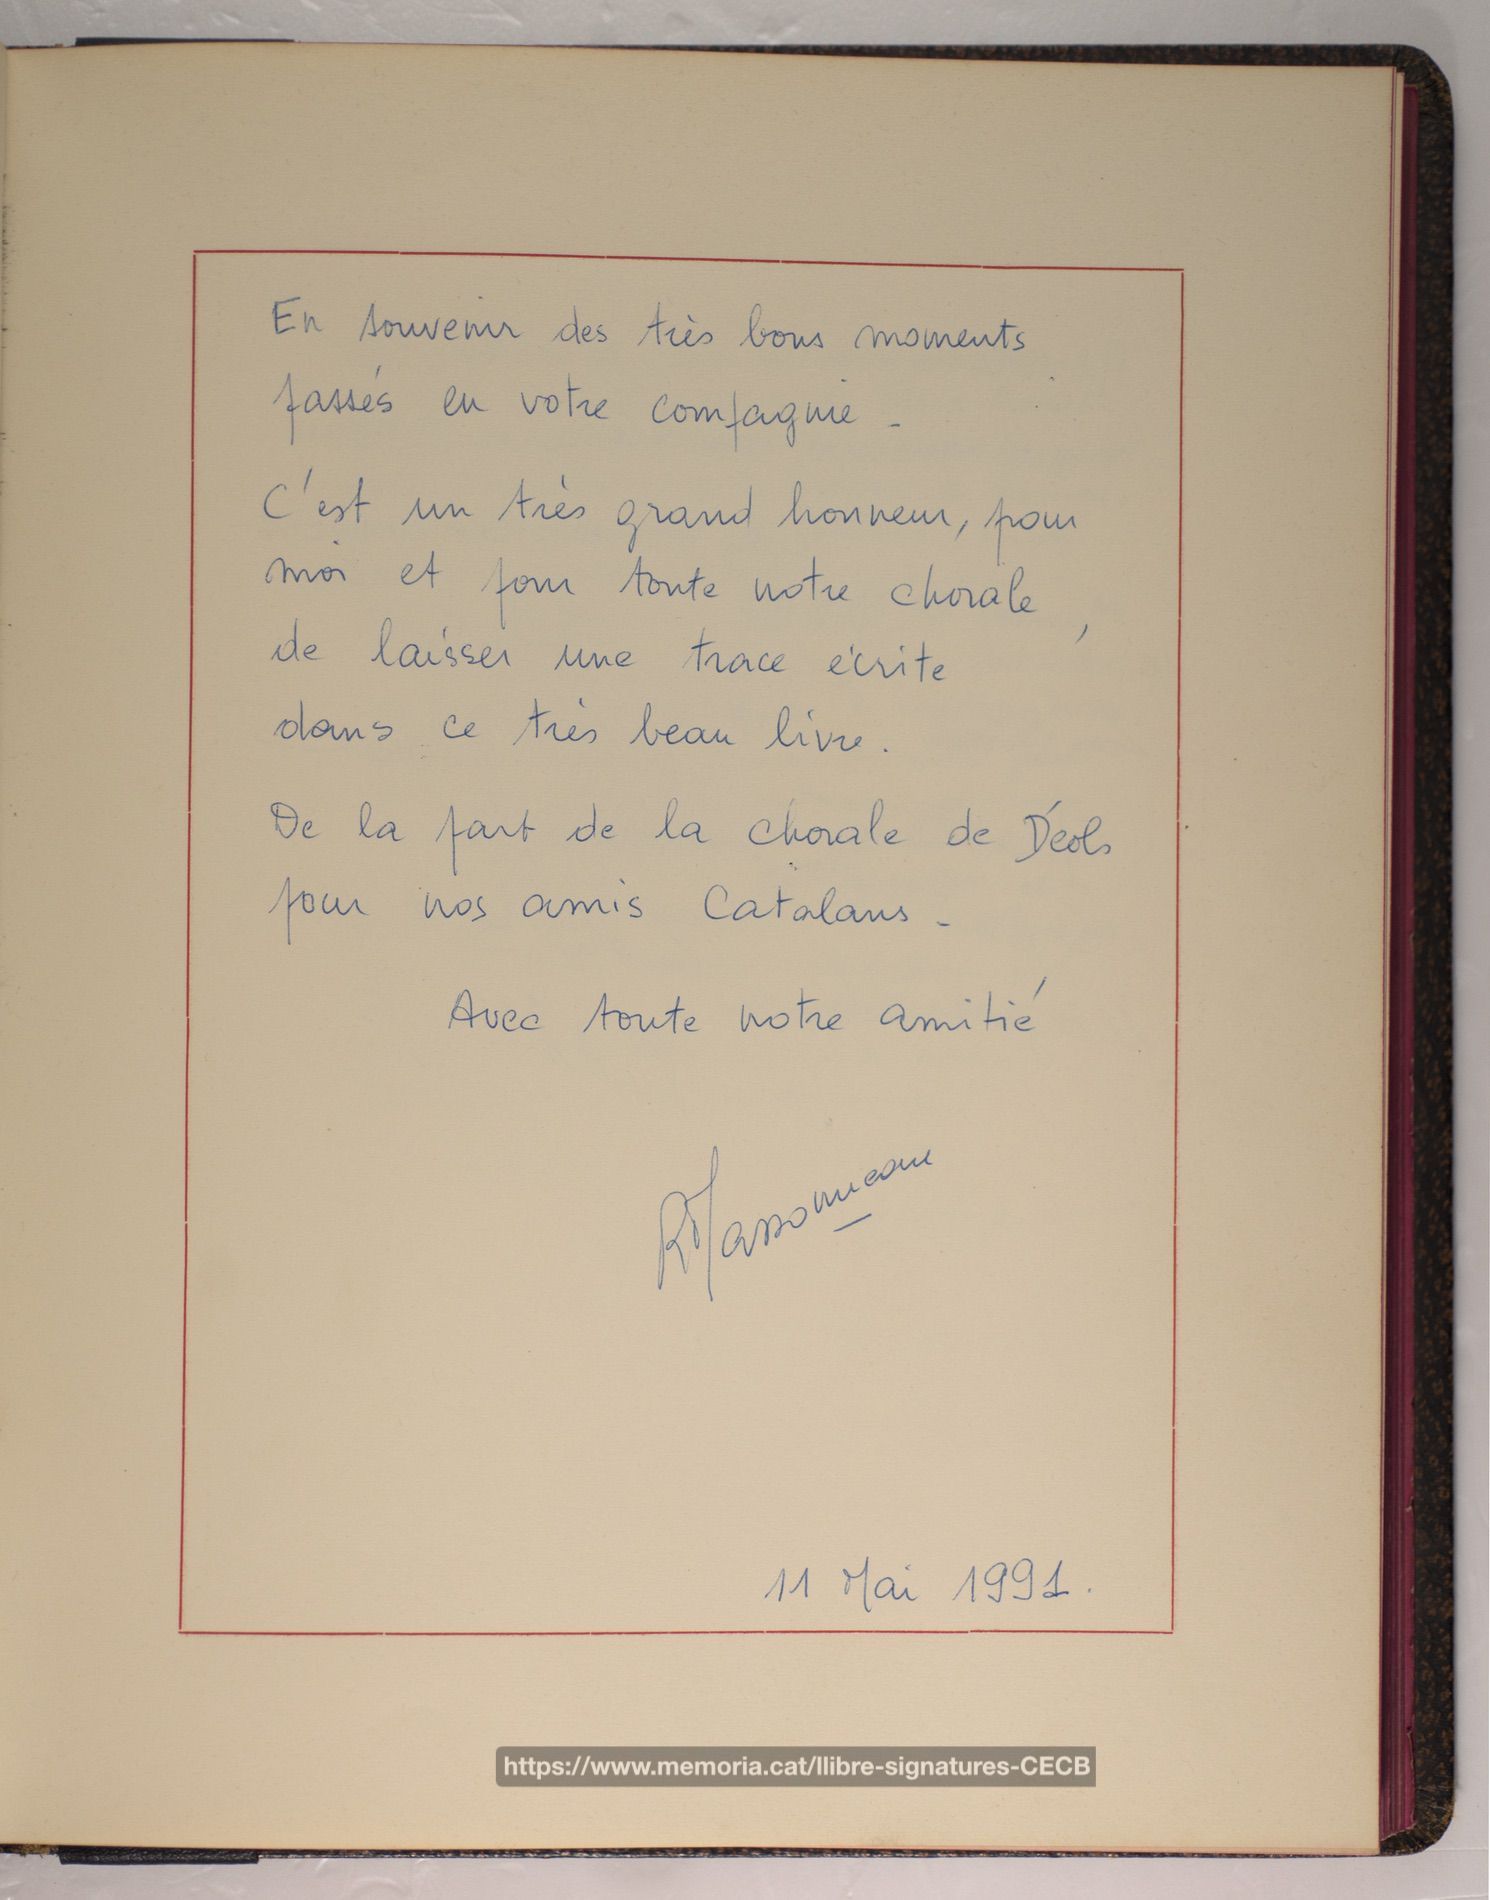 En souvenir des très bons moments
passés en votre compagnie -
C'est un très grand honneur, pour
moi et pour toute notre chorale,
de laisser une trace écrite
dans ce très beau livre.
De la part de la chorale de Déols
pour nos amis Catalans -
Avec toute notre amitié
RMassonneau
11 Mai 1991.
https://www.memoria.cat/llibre-signatures-CECB